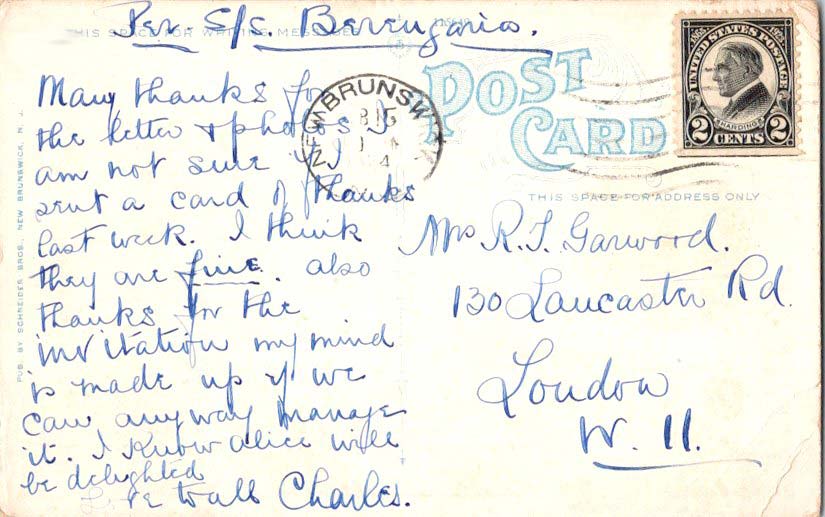 Per S/S Berengaria.
THIS SPACE FOR WRITING MESSAGES
Many thanks for
the letter + photos I
am not sure if I
sent a card of thanks
last week. I think
they are fine. also
thanks for the
invitation my mind
is made up if we
can anyway manage
it. I know alice will
be delighted
Love to all Charles.
PUB. BY SCHNEIDER BROS., NEW BRUNSWICK, N. J.
NEW BRUNSW
POST
CARD
UNITED STATES POSTAGE
1865 1923
HARDING
2 CENTS 2
THIS SPACE FOR ADDRESS ONLY
Mrs R. T. Garwood.
130 Lancaster Rd.
London
W. 11.